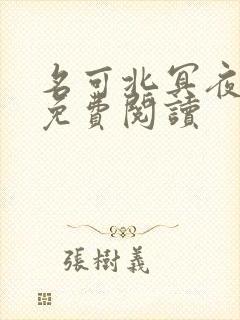 名可北冥夜
免費閱讀
張樹義